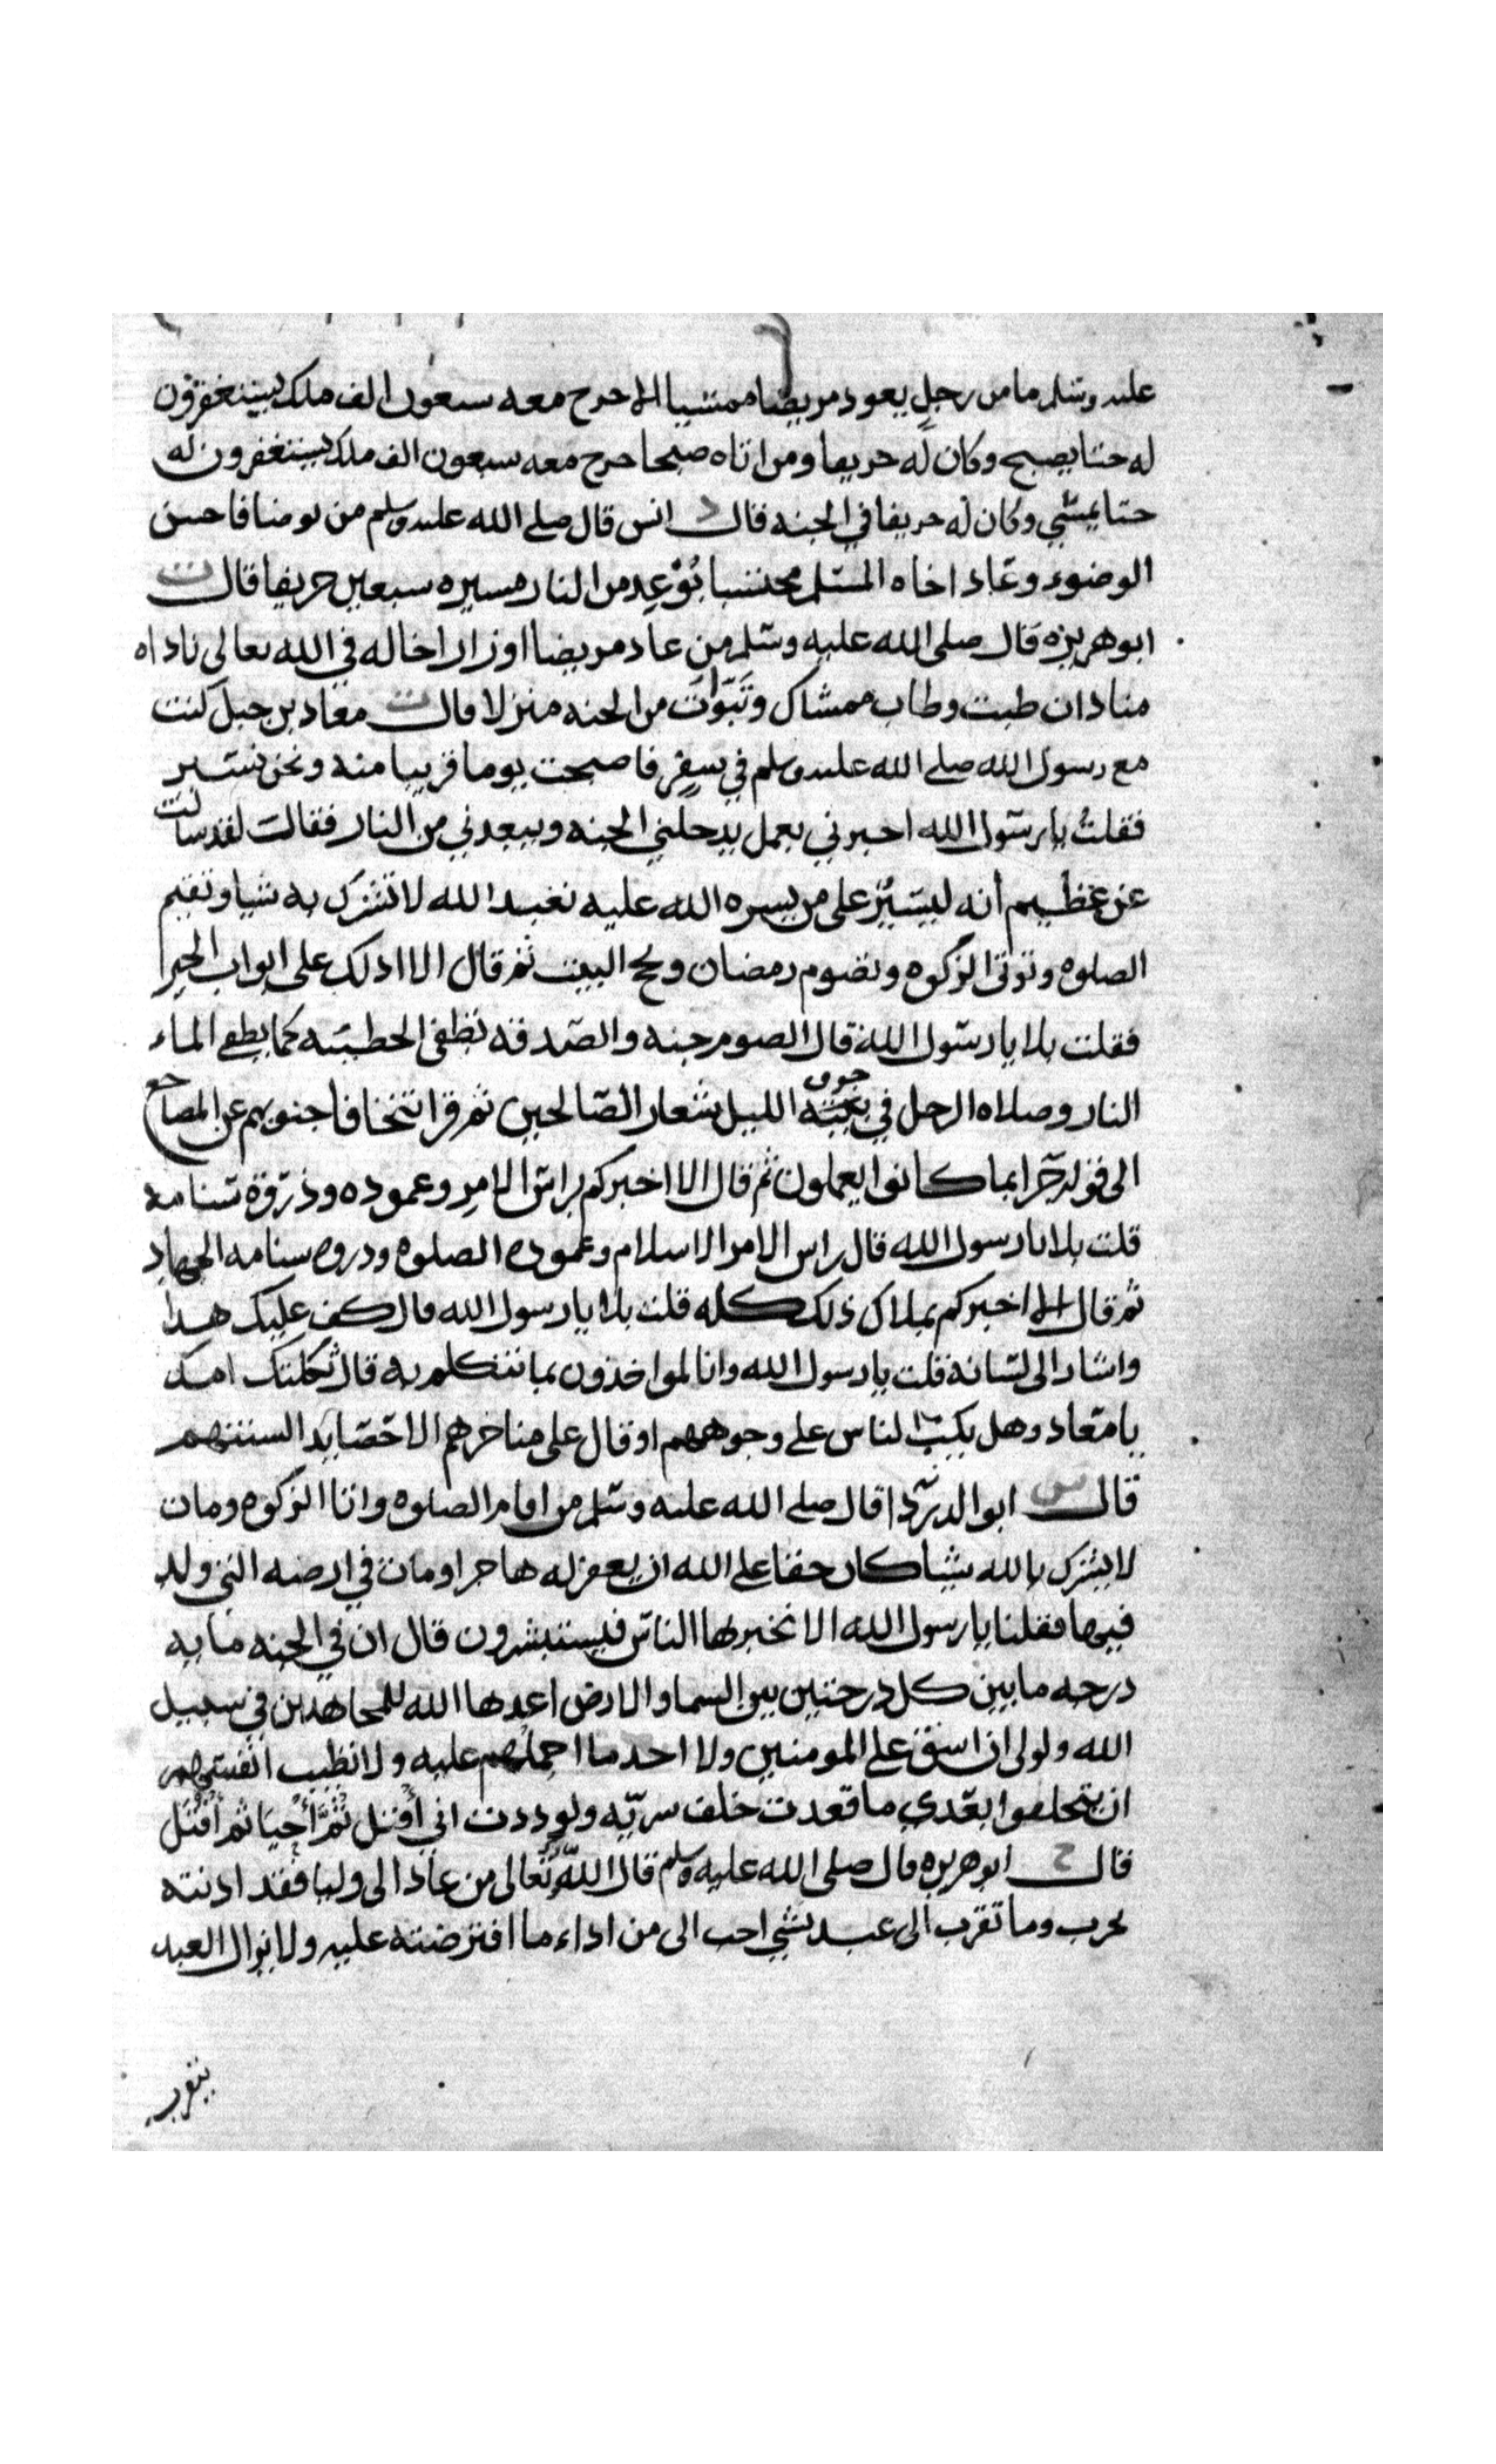 عليه وسلم ما من رجل يعود مريضا ممشيا الا خرج معه سبعون الف ملك يستغفرون
له حتا يصبح وكان له خريفا ومن اتاه صبحا خرج معه سبعون الف ملك يستغفرون له
حتا يمشي وكان له خريفا في الجنه قال د انس قال صلى الله عليه وسلم من توضا فاحسن
الوضوء وعاد اخاه المسلم محتسبا بوعد من النار مسيره سبعين خريفا قال ت
ابو هريره قال صلى الله عليه وسلم من عاد مريضا او زار اخا له في الله تعالى ناداه
مناد ان طبت وطاب ممشاك وتبوات من الجنه منزلا قال ت معاد بن جبل كنت
مع رسول الله صلى الله عليه وسلم في سفر فاصبحت يوما قريبا منه ونحن نسير
فقلت يا رسول الله اخبرني بعمل يدخلني الجنه ويبعدني من النار فقال لقد سالت
عن عظيم انه ليسير على من يسره الله عليه تعبد الله لا تشرك به شيا وتقيم
الصلوه وتوتى الزكوه وتصوم رمضان وتحج البيت ثم قال الا ادلك على ابواب الخير
فقلت بلا يا رسول الله قال الصوم جنه والصدقه تطفى الخطيه كما يطفى الماء
النار وصلاه الرجل في جوف الليل شعار الصالحين ثم قرا تتخافا جنوبهم عن المضاجع
الى قوله جزا بما كانوا يعملون ثم قال الا اخبركم براس الامر وعموده وذروة سنامه
قلت بلا يا رسول الله قال راس الامر الاسلام وعموده الصلوه ودروه سنامه الجهاد
ثم قال الا اخبركم بملاك ذلك كله قلت بلا يا رسول الله قال كف عليك هدا
واشار الى لسانه قلت يا رسول الله وانا لمواخذون بما نتكلم به قال ثكلتك امك
يا معاد وهل يكب الناس على وجوههم او قال على مناخرهم الا حصايد السنتهم
قال س ابو الدردا قال صلى الله عليه وسلم من اقام الصلوه واتا الزكوه ومات
لا يشرك بالله شيا كان حقا على الله ان يغفر له هاجر او مات في ارضه التي ولد
فيها فقلنا يا رسول الله الا نخبر لها الناس فيستبشرون قال ان في الجنه مايه
درجه ما بين كل درجتين بين السما والارض اعدها الله للمجاهدين في سبيل
الله ولولى ان اشق على المومنين ولا احد ما احملهم عليه ولا تطيب انفسهم
ان يتخلفوا بعدي ما قعدت خلف سريه ولوددت اني اقتل ثم احيا ثم اقتل
قال خ ابو هريره قال صلى الله عليه وسلم قال الله تعالى من عادا لى وليا فقد اذنته
بحرب وما تقرب الى عبد بشي احب الى من اداء ما افترضته عليه ولا يزال العبد
يتقرب